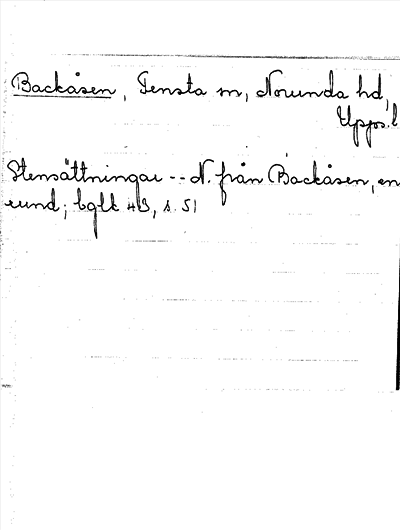 Backåsen, Tensta sn, Norunda hd,
Upps. l
Stensättningar -- N. från Backåsen, en
rund; bglt 43, s. 51